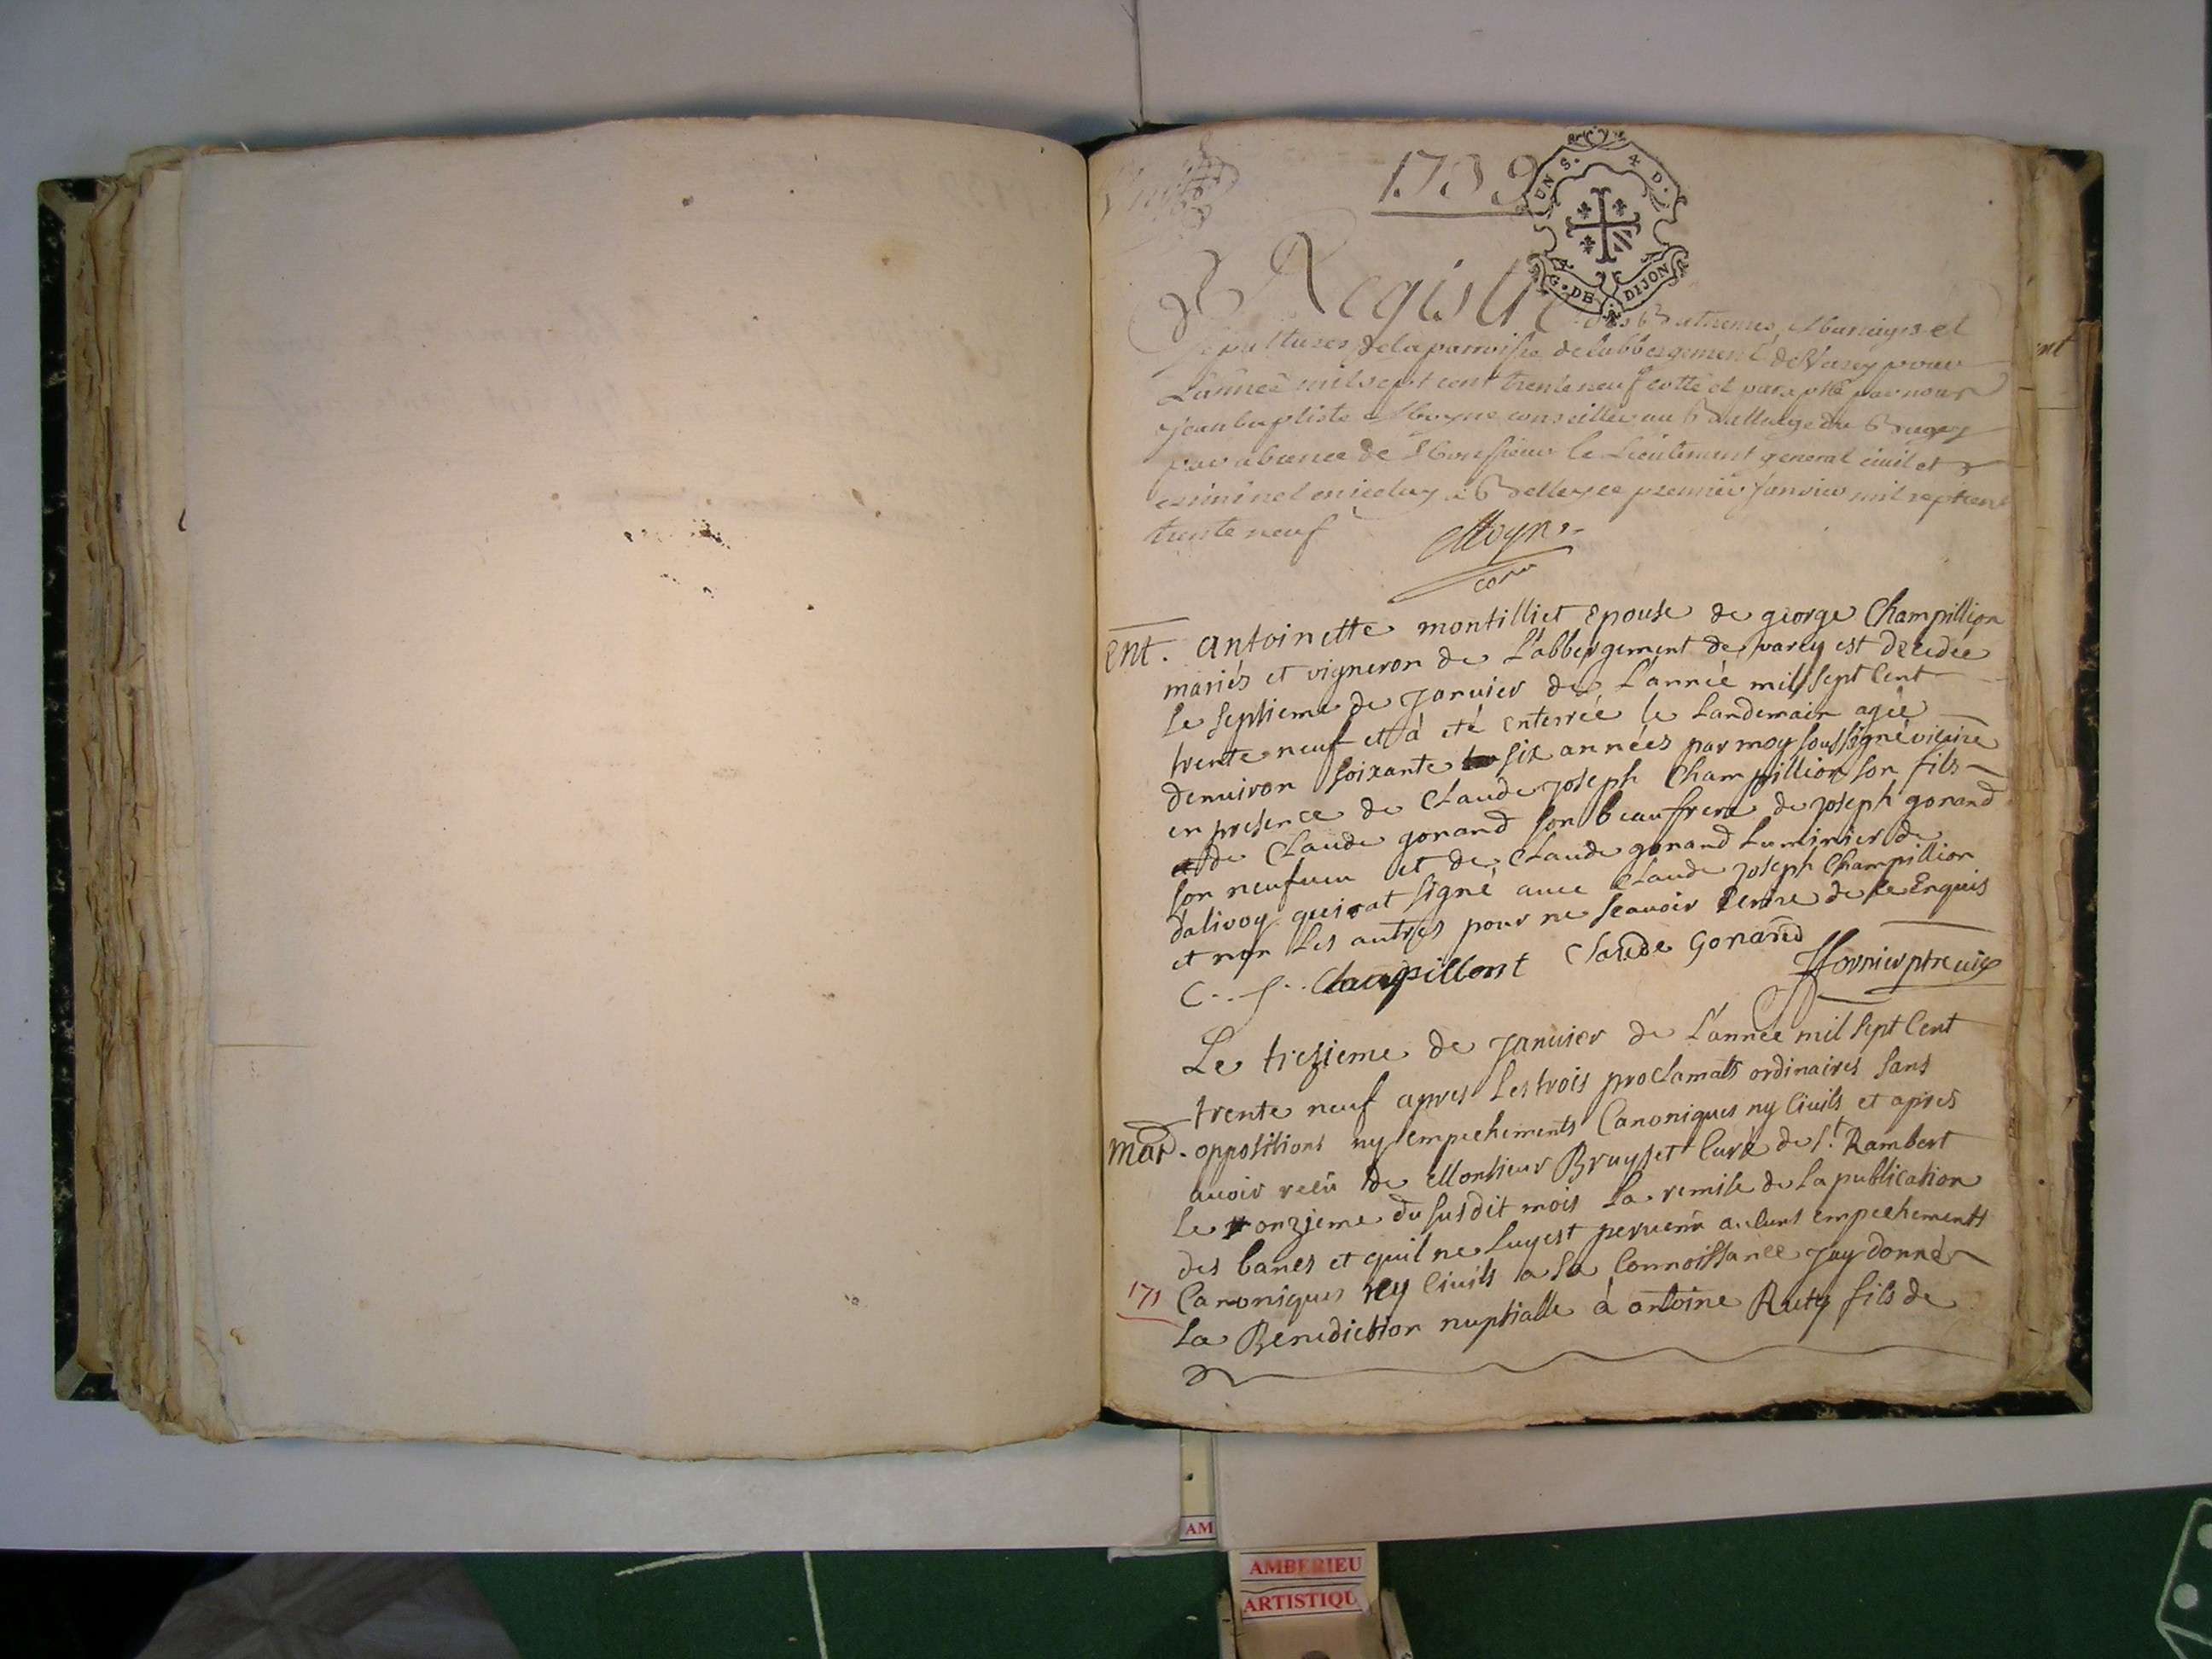 1739
UN S. 4 D.
G. DE DIJON
Registre des Batêmes, Mariages et
sepultures de la parroisse de labbergement de Varey pour
L'année mil sept cent trente neuf cotté et paraphé par nous
Jean baptiste Moyne conseiller au Balliage du Bugey
par absence de Monsieur le Lieutenant general civil et
criminel en iceluy à Belley ce premier Janvier mil sept cent
trente neuf
Moyne
ent. antoinette montilliet epouse de george Champillion
mariés et vigneron de L'abbergement de varey est decedée
le septieme de Janvier de L'année mil sept Cent
trente neuf et à eté enterrée le Landemain agée
denviron soixante six années par moy soussigné vicaire
en presence de Claude joseph Champillion son fils
de Claude gonand son beaufrere de joseph gonand
son neufveu et de Claude gonand Luminier de
dalivoy qui at signé avec Claude joseph Champillion
et non Les autres pour ne sçavoir de ce Enquis
C. J. Champillont Claude Gonand
ptre vic
Le triesieme de Janvier de L'année mil sept Cent
trente neuf apres Les trois proclamats ordinaires sans
mar. oppositions ny empechements Canoniques ny Civils et apres
avoir reçû de Monsieur Bruyset Curé de St. Rambert
le onzieme du susdit mois La remise de La publication
des bancs et quil ne Luy est pervenû aucuns empechements
171 Canoniques ny Civils a sa Connoissance Jay donné
La Benediction nuptialle à antoine Ruty fils de
AM
AMBERIEU
ARTISTIQU
nt